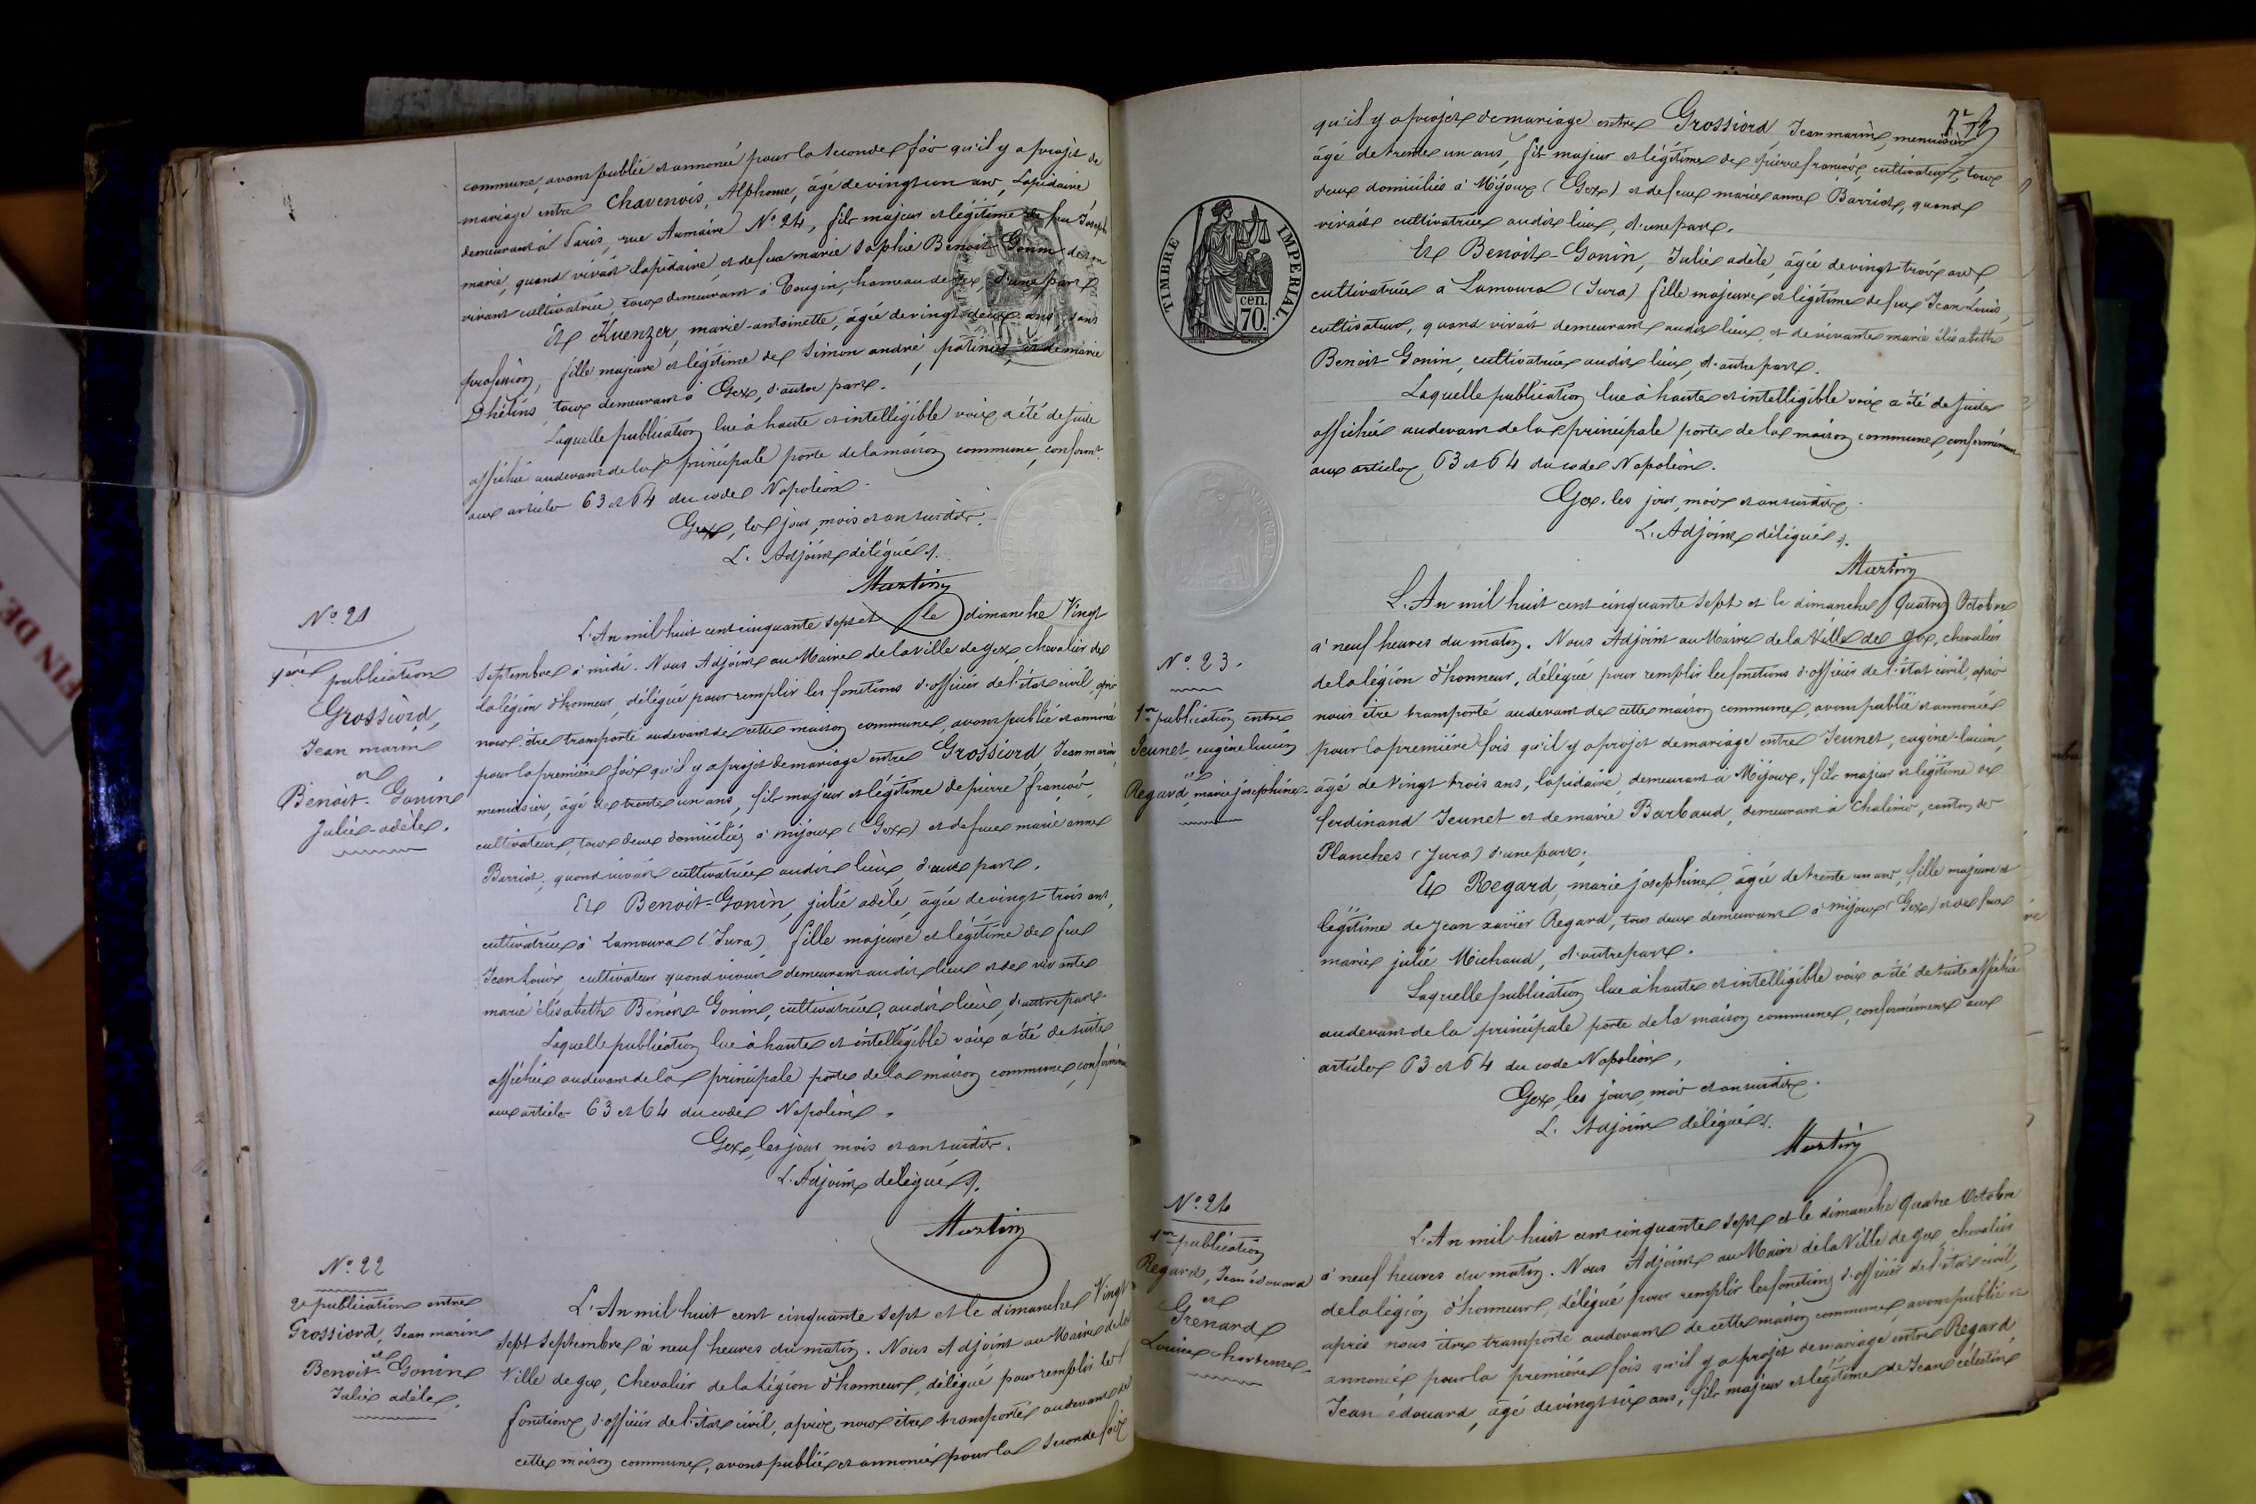 commune, avons publié et annoncé pour la seconde fois qu'il y a projet de
mariage entre Chavenois, Alphonse, âgé de vingt un ans, Lapidaire
demeurant à Paris, rue Aumaire N° 24, fils majeur et légitime de feu Joseph
marie, quand vivait lapidaire, et de feue marie Sophie Benoit-Gonin de son
vivant cultivatrice, tous demeurant à Tougin, hameau de Gex, d'une part
Et Kuenzer, marie-antoinette, âgée de vingt-deux ans, sans
profession, fille majeure et légitime de Simon andré, et de marie
tous demeurant à Gex, d'autre part.
Laquelle publication lue à haute et intelligible voix a été de suite
affichée au devant de la principale porte de la maison commune, conformt
aux articles 63 et 64 du code Napoléon.
Gex, les jour, mois et an susdits.
L'Adjoint délégué s.
Martin
N° 21
1ère publication
Grossiord,
Jean marin
et
Benoit-Gonin
Julie-adèle.
L'An mil huit cent cinquante sept et le dimanche Vingt
Septembre à midi. Nous Adjoint au Maire de la ville de gex chevalier de
la légion d'honneur, délégué pour remplir les fonctions d'officier de l'état civil, après
nous être transporté au devant de cette maison commune, avons publié et annoncé
pour la première fois qu'il y a projet de mariage entre Grossiord, Jean marin,
menuisier, âgé de trente un ans, fils majeur et légitime de pierre françois,
cultivateur, tous deux domiciliés à mijoux (Gex) et de feue marie anne
Barriot, quand vivait cultivatrice audit lieu, d'une part.
Et Benoit-Gonin, julie adèle, âgée de vingt trois ans,
cultivatrice à Lamoura (Jura) fille majeure et légitime de feu
Jean Louis, cultivateur quand vivait demeurant audit lieu et de vivante
marie élisabeth Benoit-Gonin, cultivatrice, audit lieu, d'autre part.
Laquelle publication lue à haute et intelligible voix a été de suite
affichée au devant de la principale porte de la maison commune, conformémen
aux articles 63 et 64 du code Napoléon.
Gex, les jour, mois et an susdits.
L'Adjoint délégué s.
Martin
N° 22
2e publication entre
Grossiord, Jean marin
et
Benoit-Gonin
Julie adèle.
L'An mil huit cent cinquante sept et le dimanche Vingt
sept septembre à neuf heures du matin. Nous Adjoint au Maire de la
Ville de gex, Chevalier de la légion d'honneur, délégué pour remplir les
fonctions d'officier de l'état civil, après nous être transporté au devant de
cette maison commune, avons publié et annoncé pour la seconde fois
qu'il y a projet de mariage entre Grossiord Jean marin, menuisier
âgé de trente un ans, fils majeur et légitime de pierre françois, cultivateur, tous
deux domiciliés à Mijoux (Gex) et de feue marie anne Barriot, quand
vivait cultivatrice audit lieu, d'une part.
Et Benoit-Gonin, Julie adèle, âgée de vingt trois ans,
cultivatrice à Lamoura (Jura) fille majeure et légitime de feu Jean Louis,
cultivateur, quand vivait demeurant audit lieu, et de vivante marie élisabeth
Benoit-Gonin, cultivatrice audit lieu, d'autre part.
Laquelle publication lue à haute et intelligible voix a été de suite
affichée au devant de la principale porte de la maison commune, conformément
aux articles 63 et 64 du code Napoléon.
Gex, les jour, mois et an susdits.
L'Adjoint délégué s.
Martin
TIMBRE IMPERIAL.
cen.
70.
N° 23.
1re publication entre
Jeunet, eugène lucien
et
Regard, marie josephine
L'An mil huit cent cinquante sept et le dimanche Quatre Octobre
à neuf heures du matin. Nous Adjoint au Maire de la Ville de gex, chevalier
de la légion d'honneur, délégué pour remplir les fonctions d'officier de l'état civil, après
nous être transporté au devant de cette maison commune, avons publié et annoncé
pour la première fois qu'il y a projet de mariage entre Jeunet, eugène-lucien,
âgé de vingt trois ans, lapidaire, demeurant à Mijoux, fils majeur et légitime de
ferdinand Jeunet et de marie Barbaud, demeurant à Chalesme, canton des
Planches (Jura) d'une part.
Et Regard, marie josephine, âgée de trente un ans, fille majeure et
légitime de Jean xavier Regard, tous deux demeurant à mijoux (Gex) et de feue
marie julie Michaud, d'autre part.
Laquelle publication lue à haute et intelligible voix a été de suite affichée
au devant de la principale porte de la maison commune, conformément aux
articles 63 et 64 du code Napoléon.
Gex, les jour, mois et an susdits.
L'Adjoint délégué s.
Martin
N° 24
1re publication
Regard, Jean édouard
et
Grenard
Louise-hortense
L'An mil huit cent cinquante sept et le dimanche Quatre Octobre
à neuf heures du matin. Nous Adjoint au Maire de la Ville de gex chevalier
de la légion d'honneur, délégué pour remplir les fonctions d'officier de l'état civil,
après nous être transporté au devant de cette maison commune, avons publié et
annoncé pour la première fois qu'il y a projet de mariage entre Regard,
Jean édouard, âgé de vingt six ans, fils majeur et légitime de Jean célestin
FIN DE